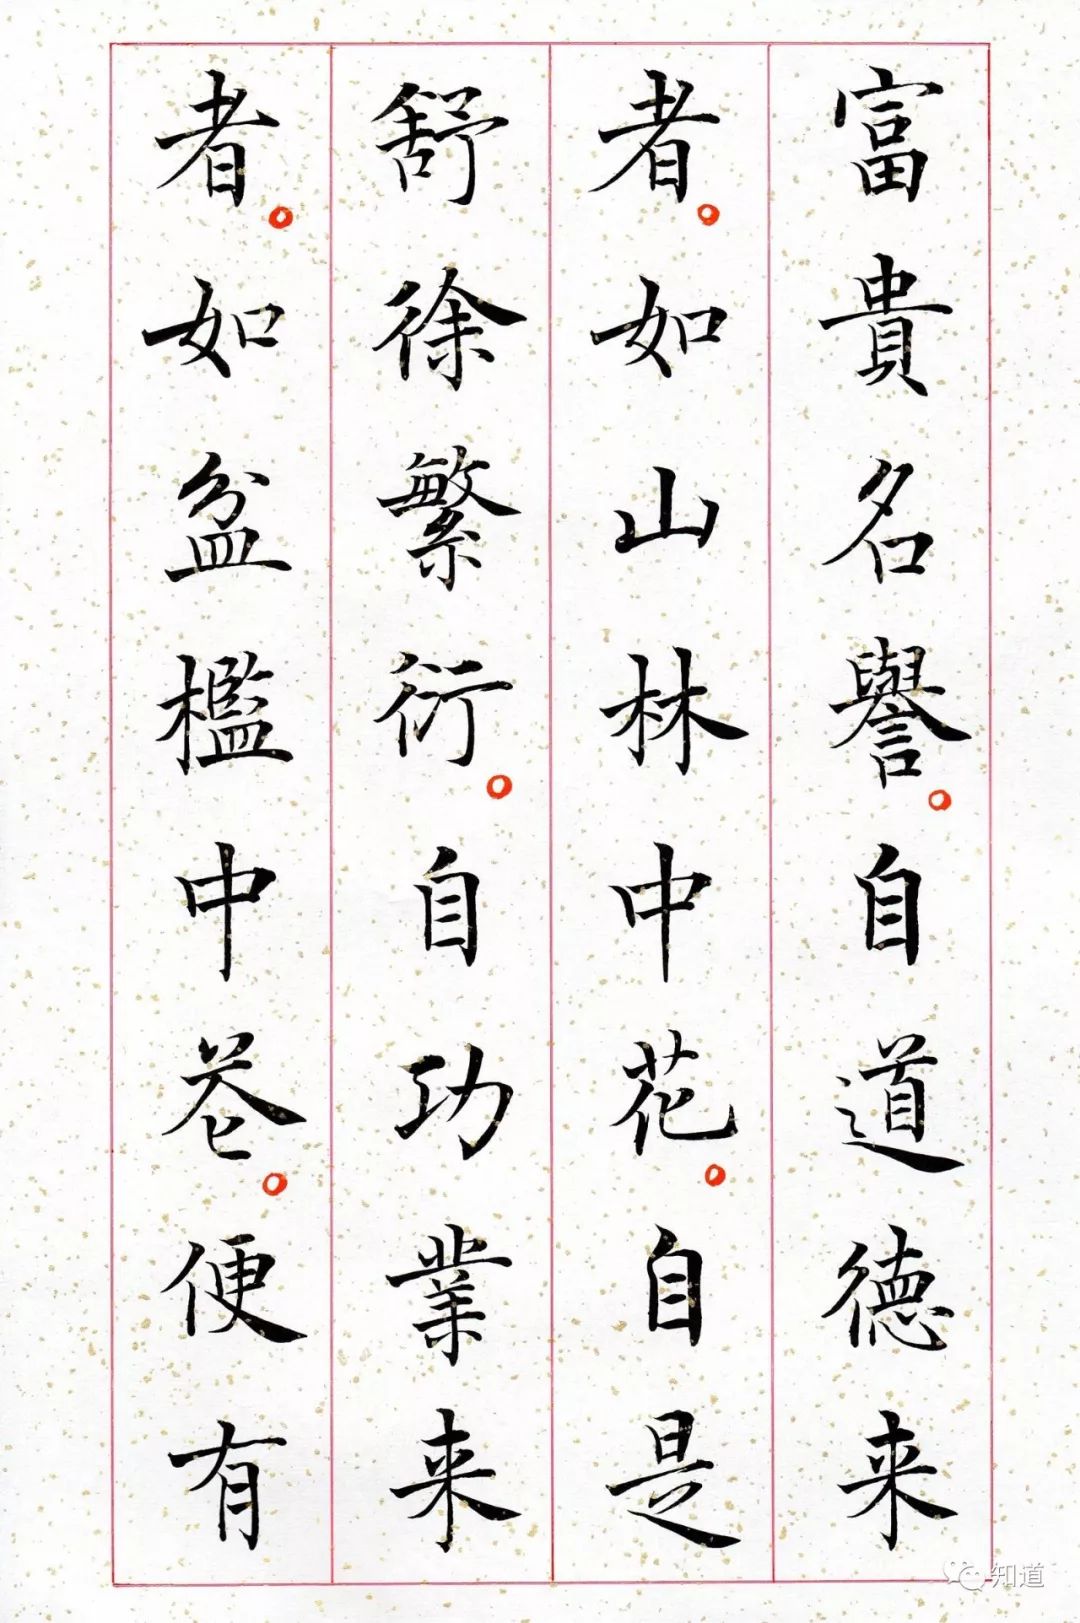 富貴名譽。自道德来
者。如山林中花。自是
舒徐繁衍。自功業来
者。如盆檻中花。便有
知道